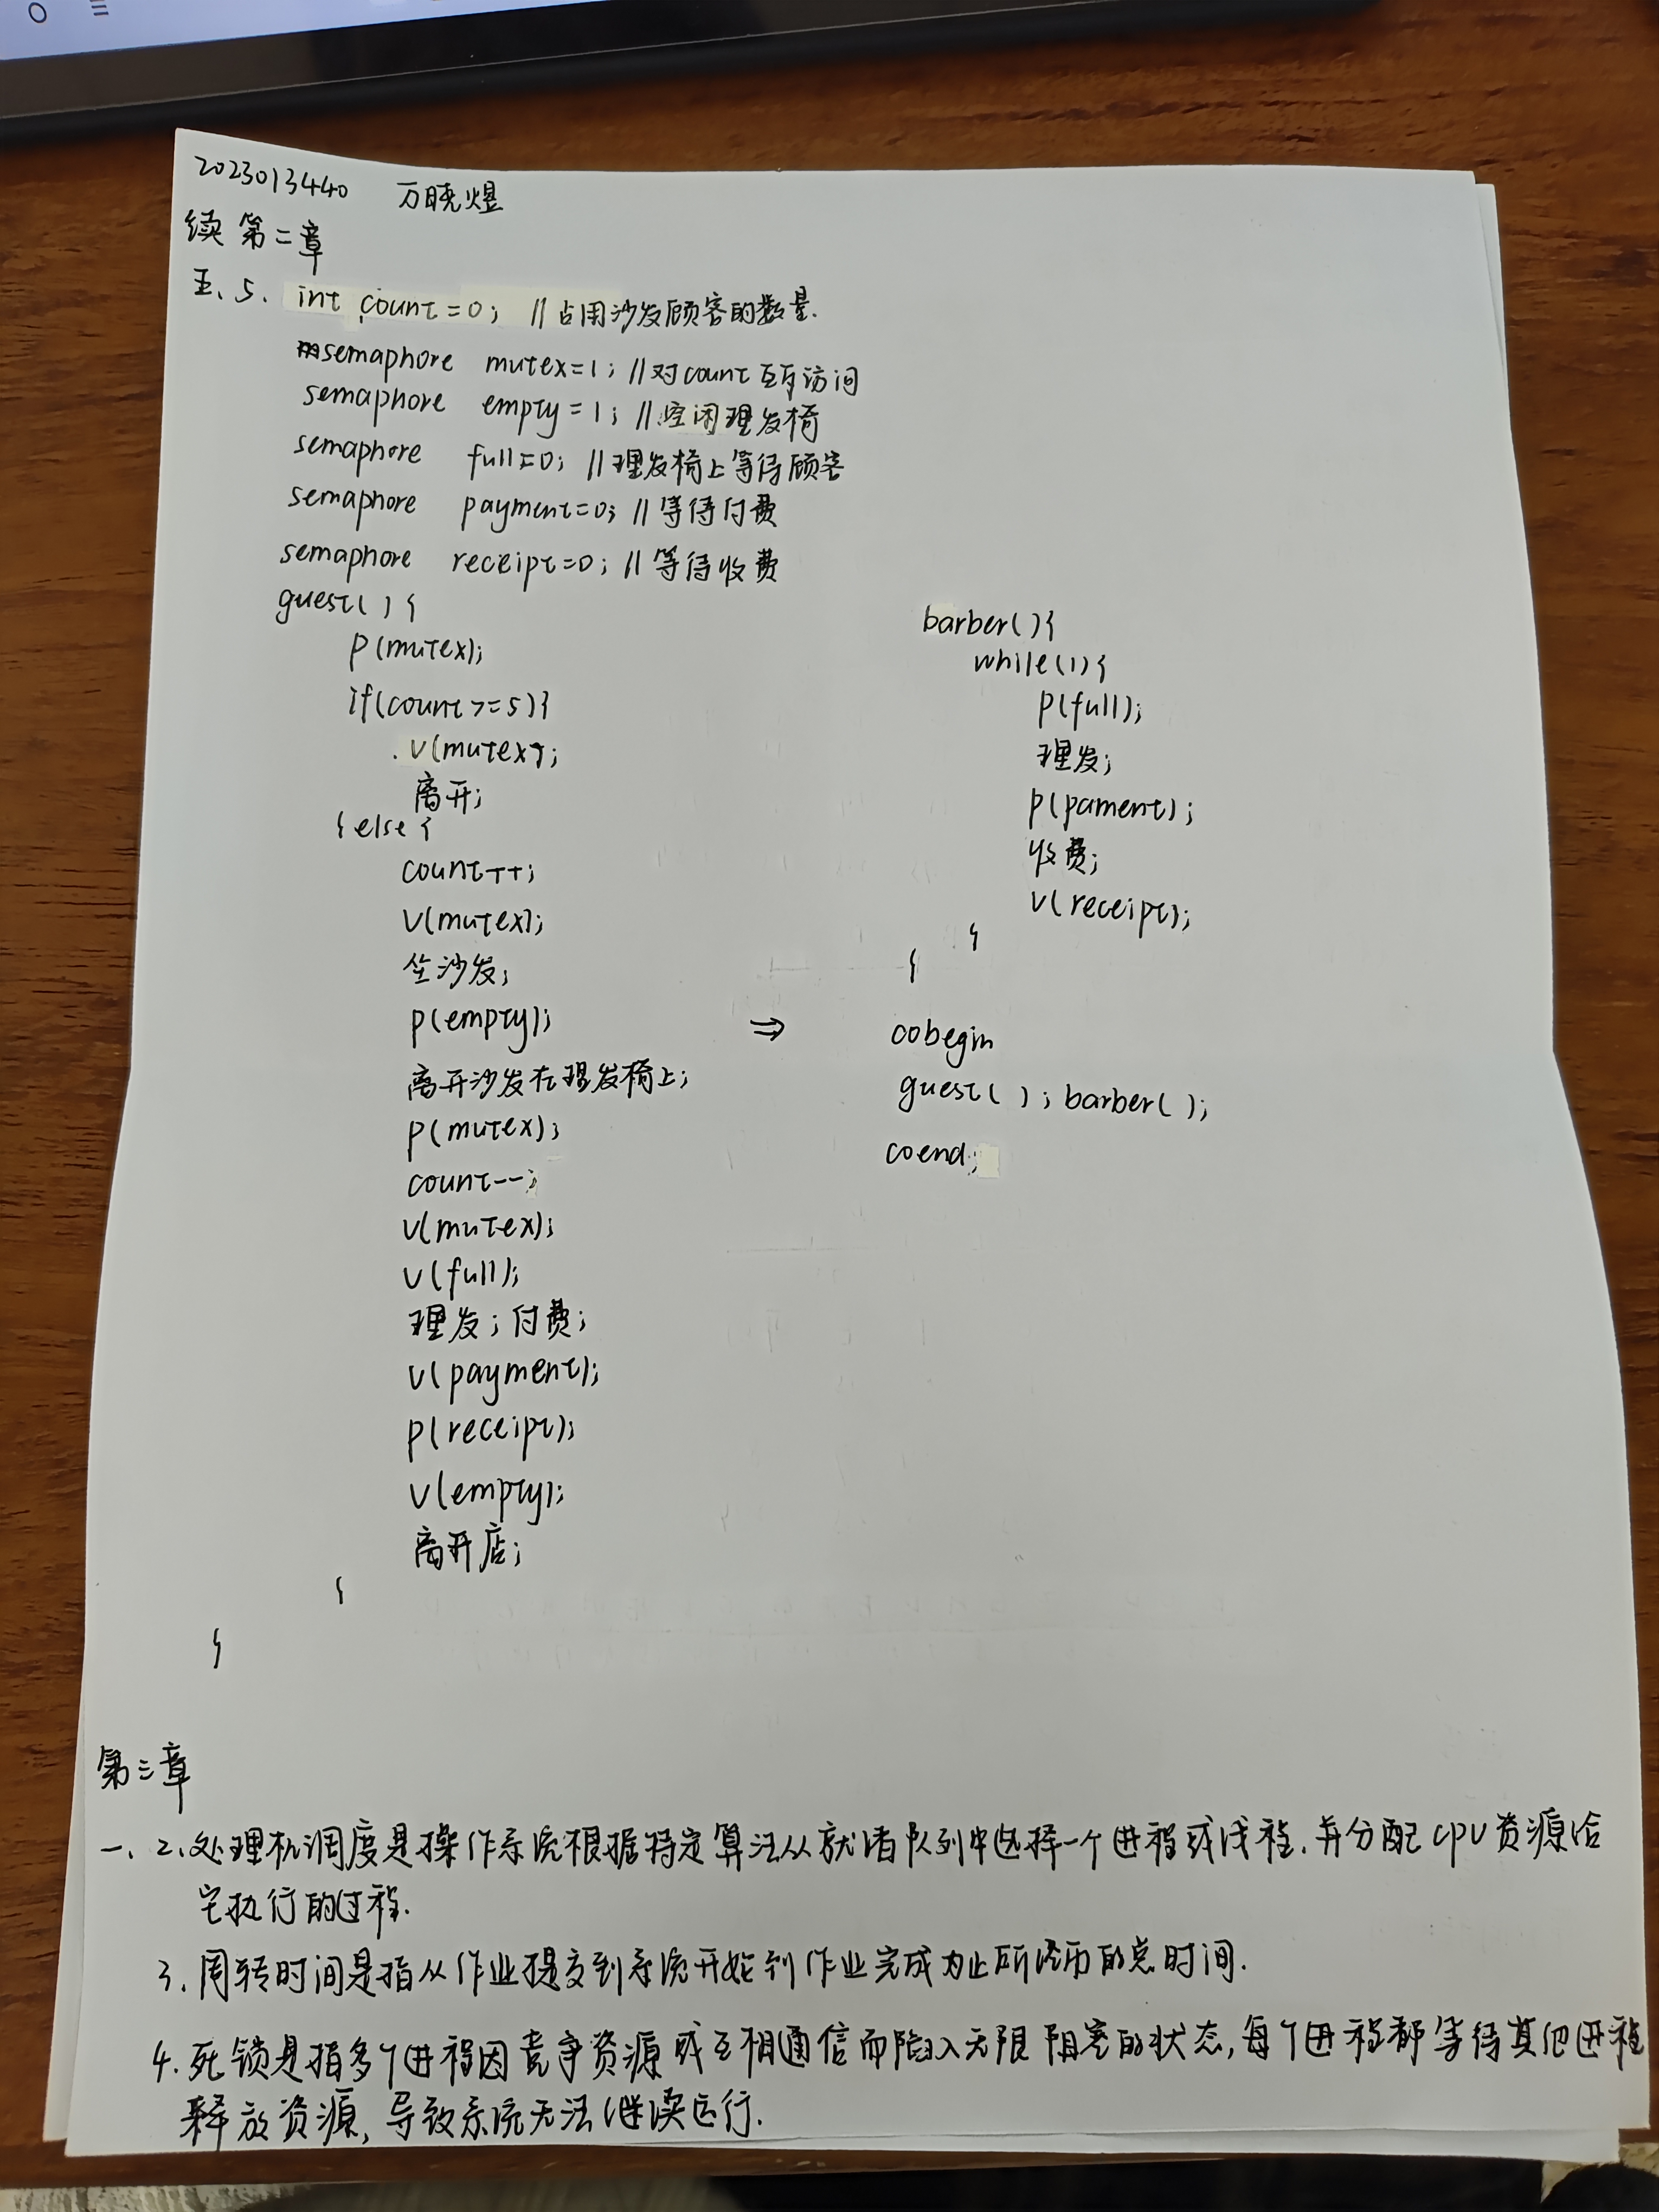 2023013440 万晓煜
续第二章
五、5. int count=0; //占用沙发顾客的数量.
semaphore mutex=1; //对count互斥访问
semaphore empty=1; //空闲理发椅
semaphore full=0; //理发椅上等待顾客
semaphore payment=0; //等待付费
semaphore receipt=0; //等待收费
guest( ) {
p(mutex);
if(count>=5){
v(mutex);
离开;
} else {
count++;
v(mutex);
坐沙发;
p(empty);
离开沙发在理发椅上;
p(mutex);
count--;
v(mutex);
v(full);
理发; 付费;
v(payment);
p(receipt);
v(empty);
离开店;
}
}
⇒
barber( ){
while(1){
p(full);
理发;
p(pament);
收费;
v(receipt);
}
}
cobegin
guest( ); barber( );
coend;
第三章
一、2. 处理机调度是操作系统根据特定算法从就绪队列中选择一个进程或线程, 并分配CPU资源给
它执行的过程.
3. 周转时间是指从作业提交到系统开始到作业完成为止所经历的总时间.
4. 死锁是指多个进程因竞争资源或互相通信而陷入无限阻塞的状态, 每个进程都等待其他进程
释放资源, 导致系统无法继续运行.